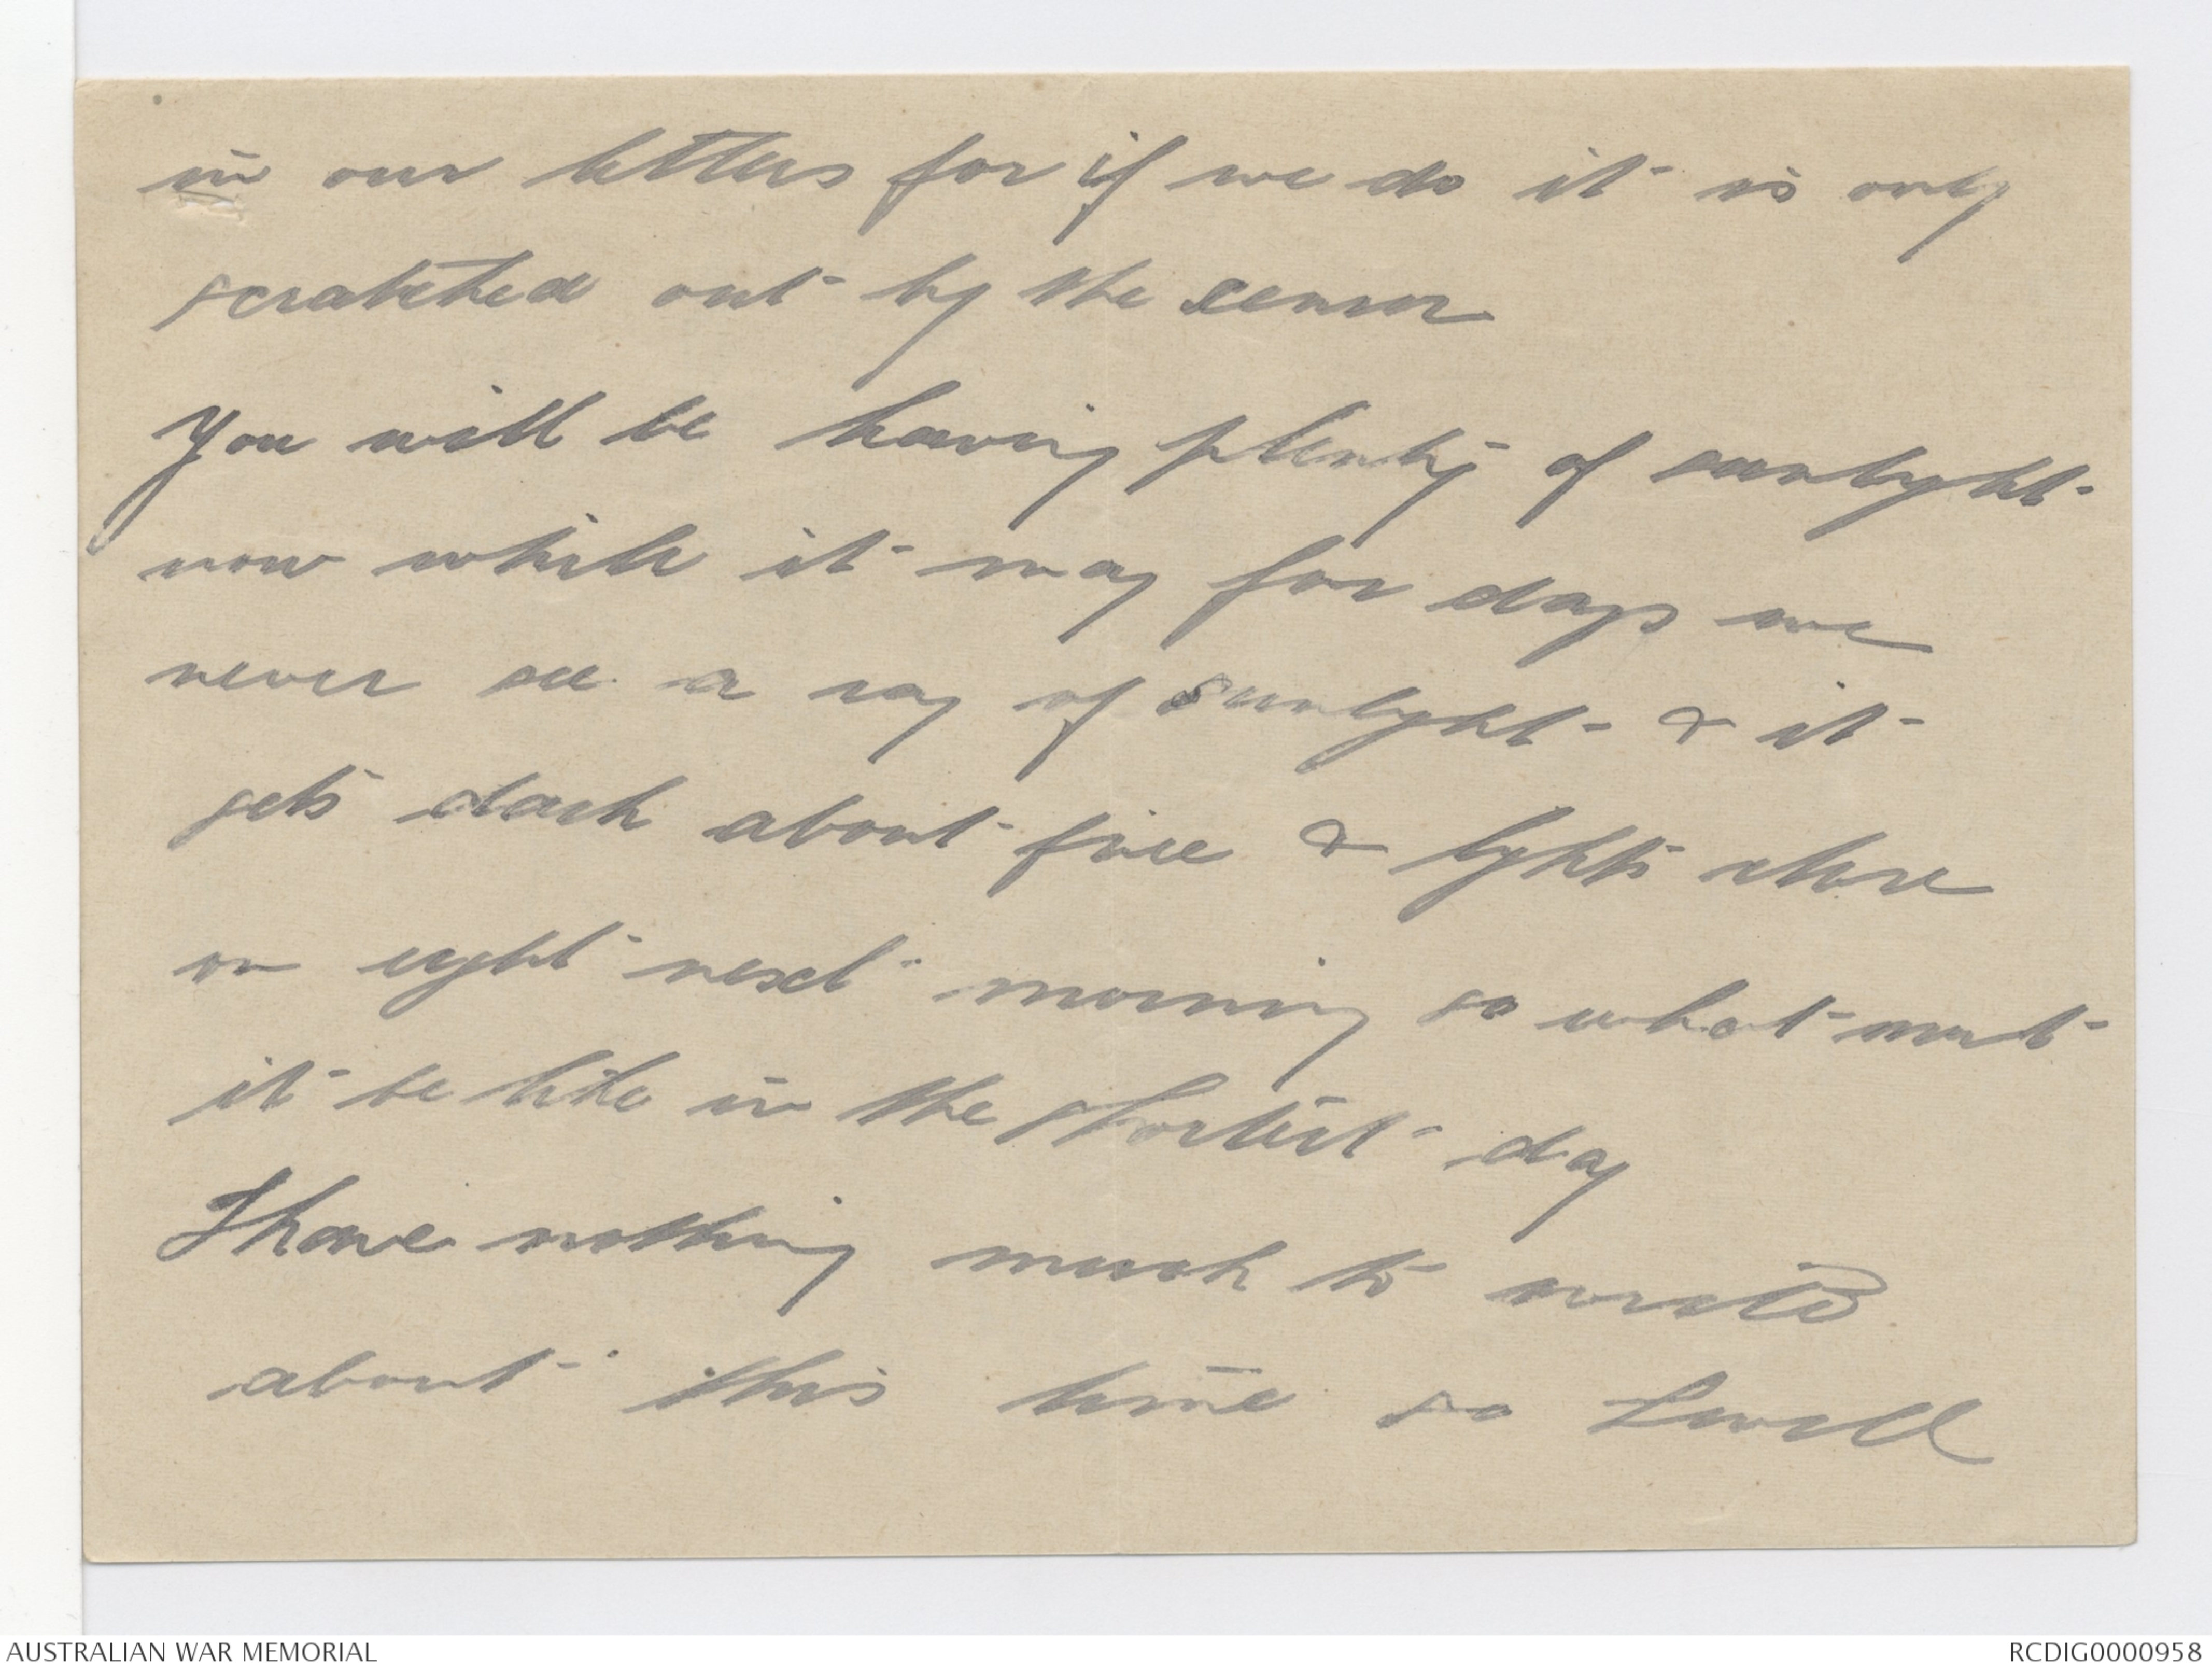 in our letters for if we do it is only
scratched out by the censor
You will be having plenty of sunlight
now while it may for days we
never see a ray of sunlight & it
gets dark about five &  lights
on eight next morning so what must
it be like in the shortest day
I have nothing much to write
about this time so I will
AUSTRALIAN WAR MEMORIAL
RCDIG0000958